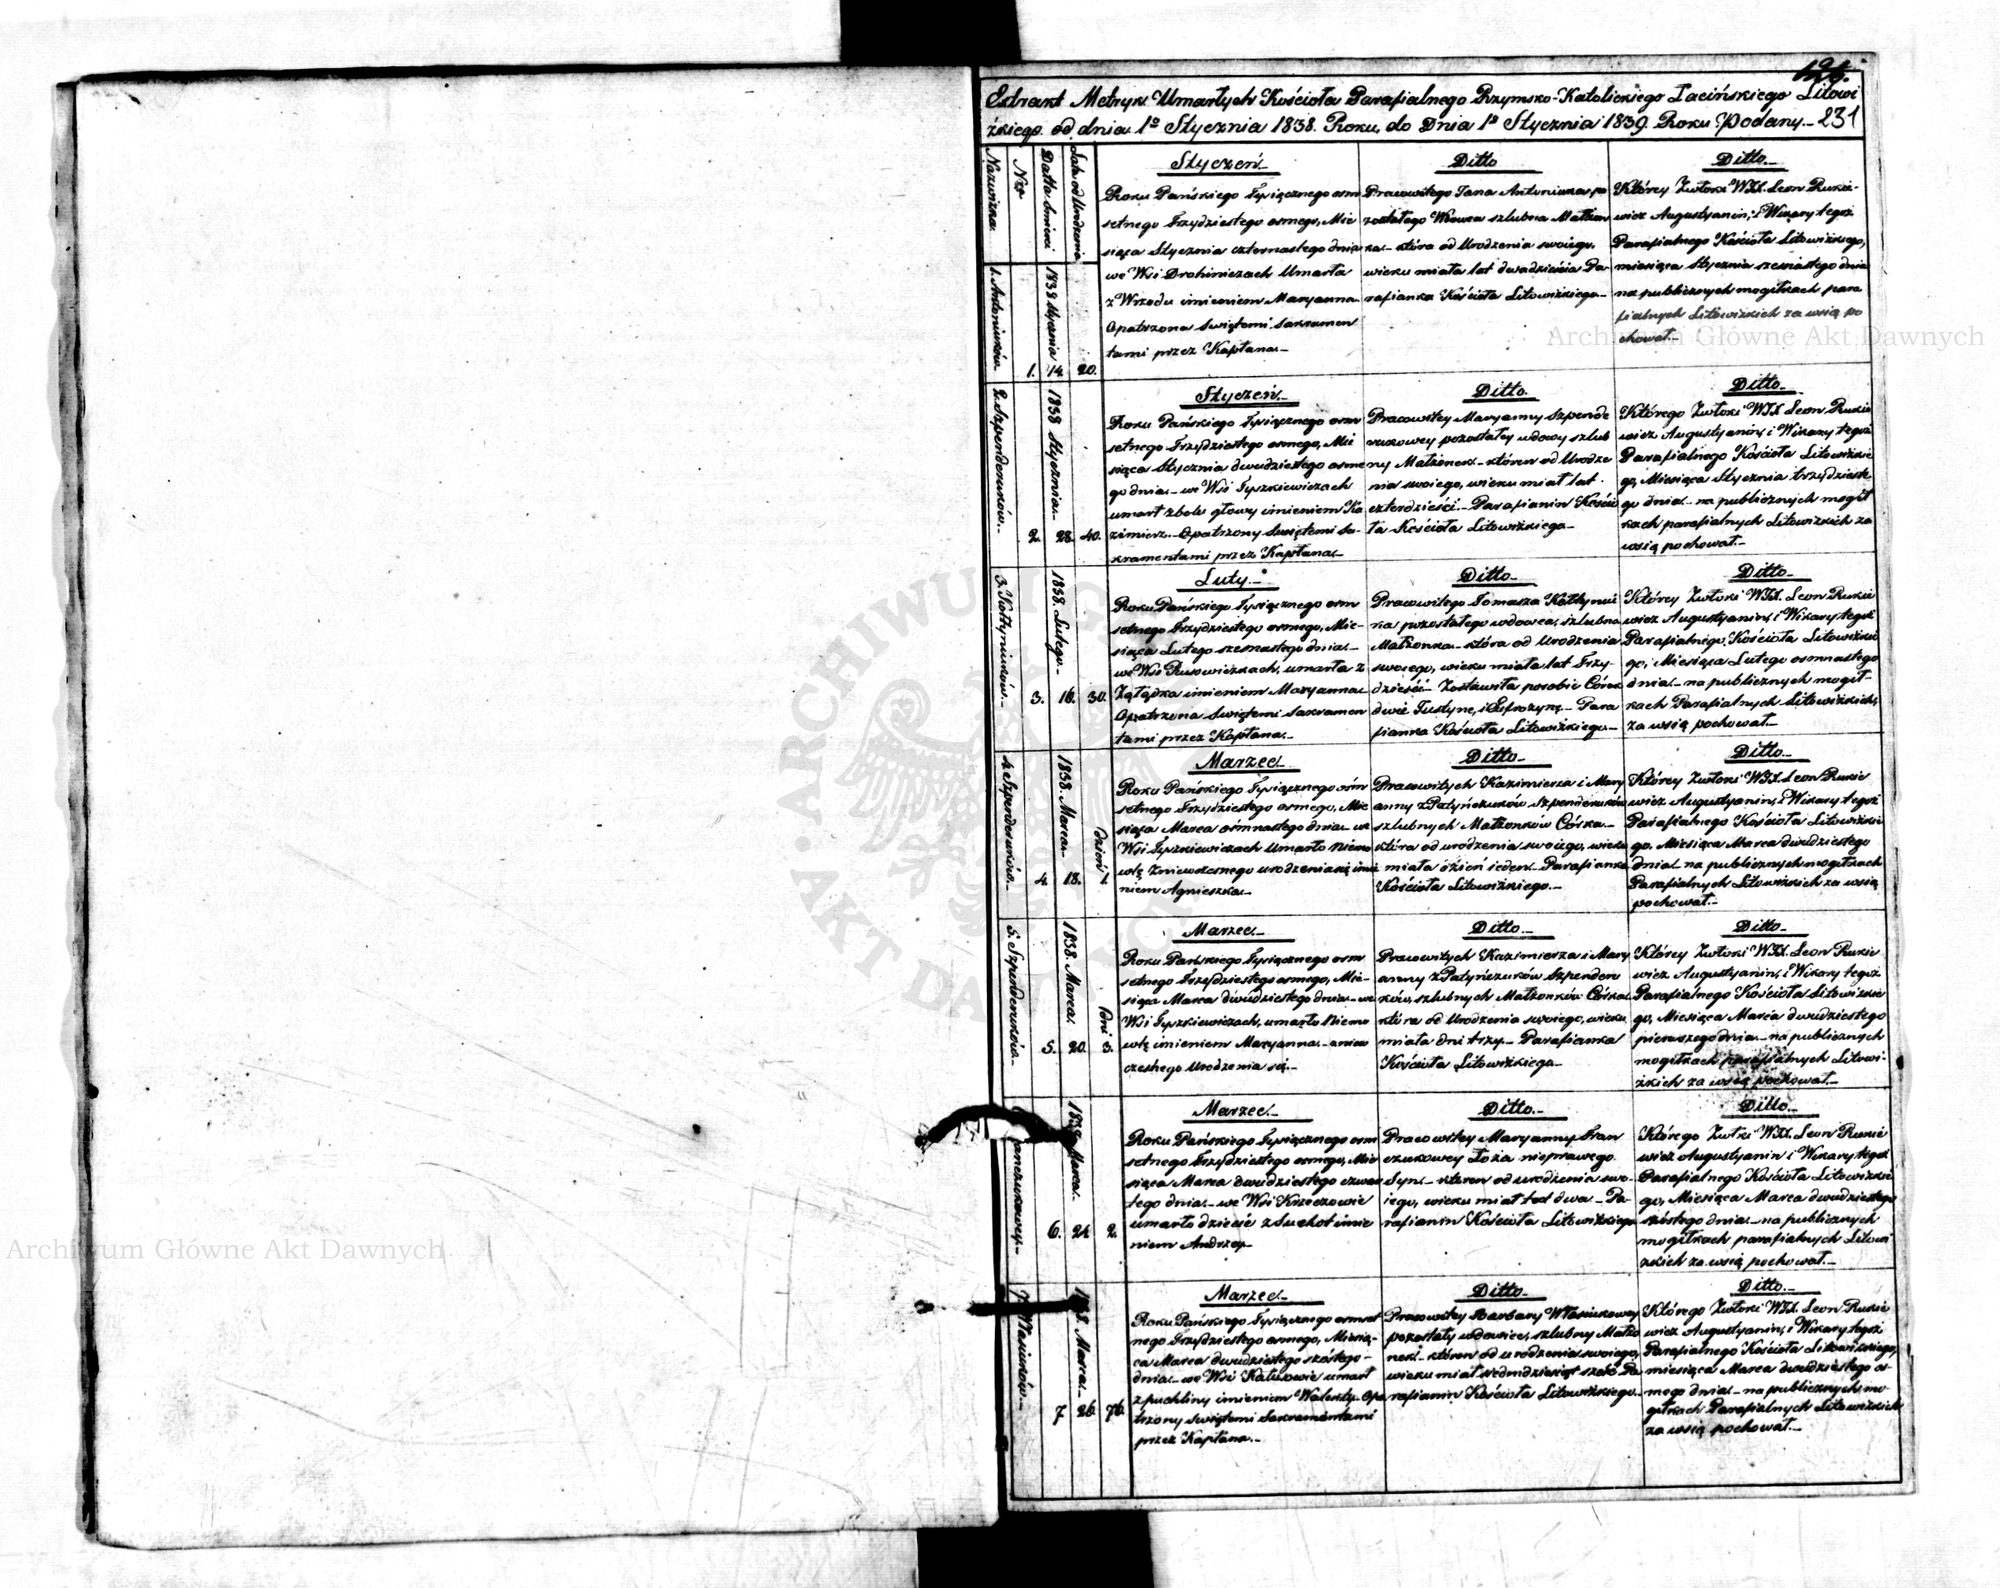 Extrakt Metryk Umarłych Kościoła Parafialnego Rzymsko-Katolickiego Łacińskiego Litowi
żkiego od dnia 1º Stycznia 1838. Roku, do Dnia 1º Stycznia 1839. Roku Podany.- 231
Nazwiska.
Nro
Datta śmierci
Lata od Urodzenia
Styczeń.-
1. Antoniuków.
1.
1838 Stycznia 14.
20.
Roku Pańskiego Tysiącznego ośm
setnego Trzydziestego osmego, Mie
siąca Stycznia czternastego dnia
we Wsi Drohiniczach Umarła
z Wrzodu imieniem Maryanna
Opatrzona Swiętemi Sakramen
tami przez Kapłana.-
Ditto
Pracowitego Jana Antoniuka po
zostałego Wdowca szlubna Małżon
ka.- która od Urodzenia swoiego,
wieku miała lat dwadzieścia Pa-
rafianka Kościoła Litowizkiego.-
Ditto.-
Którey Zwłoki WJX. Leon Rukie-
wicz Augustyanin, i Wikary tegoż
Parafialnego Kościoła Litowizkiego,
miesiąca Stycznia szesnastego dnia
na publicznych mogiłkach para
fialnych Litowizkich za wsią po
chował.
Styczeń.-
2. Szpenderuków.
2.
1838 Stycznia.- 28.
40.
Roku Pańskiego Tysiącznego osm
setnego Trzydziestego osmego, Mie
siąca Stycznia dwudziestego osme
go dnia.- we Wsi Tyszkiewiczach
umarł z bolu głowy imieniem Ka
zimierz.- Opatrzony Swiętemi Sa-
kramentami przez Kapłana.-
Ditto.
Pracowitey Maryanny Szpende
rukowey pozostałey wdowy szlub
ny Małżonek.- któren od Urodze
nia swoiego, wieku miał lat
czterdzieści.- Parafianin Kości
ła Kościoła Litowizkiego.-
Ditto.-
Którego Zwłoki WJX. Leon Rukie
wicz Augustyanin, i Wikary tegoż
Parafialnego Kościoła Litowizkie
go, Miesiąca Stycznia trzydzieste
go dnia.- na publicznych mogił
kach parafialnych Litowizkich za
wsią pochował.-
Luty.-
3.
1838. Lutego.- 16.
30.
Roku Pańskiego Tysiącznego osm
setnego Trzydziestego osmego, Mie-
siąca Lutego szesnastego dnia.-
umarła z
imieniem Maryanna
Opatrzona Swiętemi Sakramen
tami przez Kapłana.-
Ditto.-
Pracowitego Tomasza
ka pozostałego wdowca, szlubna
Małżonka.- która od Urodzenia
swoiego, wieku miała lat Trzy-
dzieści.- Zostawiła posobie Córek
dwie Justynę, i Eufrozynę.- Para
fianka Kościoła Litowizkiego.-
Ditto.-
Którey Zwłoki WJX. Leon Rukie
wicz Augustyanin, i Wikary tegoż
Parafialnego Kościoła Litowizkie
go, Miesiąca Lutego osmnastego
dnia.- na publicznych mogił-
kach Parafialnych Litowizkich,
za wsią pochował.-
Marzec.-
4. Szpenderuków.-
4.
1838. Marca.- 18.
dzień 1.
Roku Pańskiego Tysiącznego ośm
setnego Trzydziestego osmego, Mie
siąca Marca ośmnastego dnia.- we
Wsi Tyszkiewiczach Umarło Niemo
wlę Zniewczesnego urodzenia się imie
niem Agnieszka.-
Ditto.-
Pracowitych Kazimierza i Mary
anny z Patyńczuków Szpenderuków
szlubnych Małżonków Córka.-
która od urodzenia swoiego, wieku
miała dzień ieden.- Parafianka
Kościoła Litowizkiego.-
Ditto.-
Którey Zwłoki WJX. Leon Rukie
wicz Augustyanin, i Wikary tegoż
Parafialnego Kościoła Litowizkie
go, Miesiąca Marca dwudziestego
dnia.- na publicznych mogiłkach
Parafialnych Litowizkich za wsią
pochował.-
Marzec.-
5. Szpenderuków.-
5.
1838. Marca. 20.
Dni 3.
Roku Pańskiego Tysiącznego osm
setnego Trzydziestego osmego, Mie-
siąca Marca dwudziestego dnia.- we
Wsi Tyszkiewiczach, umarło Niemo
wlę imieniem Maryanna.- zniew
czesnego Urodzenia się.-
Ditto.-
Pracowitych Kazimierza i Mary
anny z Patyńczuków Szpenderu
ków, szlubnych Małżonków Córka.
która od Urodzenia swoiego, wieku
miała dni trzy.- Parafianka
Kościoła Litowizkiego.-
Ditto.-
Którey Zwłoki WJX. Leon Rukie
wicz Augustyanin, i Wikary tegoż
Parafialnego Kościoła Litowizkie
go, Miesiąca Marca dwudziestego
pierwszego dnia.- na publicznych
mogiłkach parafialnych Litowi-
zkich za wsią pochował.-
Marzec.-
6.
1838 Marca. 24.
2.
Roku Pańskiego Tysiącznego osm
setnego Trzydziestego osmego, Mie
siąca Marca dwudziestego czwar
tego dnia.- we Wsi Krzeczowie
umarło dziecie z Suchot imie
niem Andrzey.-
Ditto.-
Pracowitey Maryanny Fran
czukowey Łoża nieprawego
Syn.- któren od urodzenia swo-
iego, wieku miał lat dwa.- Pa-
rafianin Kościoła Litowizkiego
Ditto.-
Którego Zwłki WJX. Leon Rukie
wicz Augustyanin i Wikary tegoż
Parafialnego Kościoła Litowizkie
go, Miesiąca Marca dwudziestego
szóstego dnia.- na publicznych
mogiłkach parafialnych Litowi
zkich za wsią pochował.-
Marzec.-
7. Własiuków.-
7.
1838. Marca.- 26.
76.
Roku Pańskiego Tysiącznego osmset
nego Trzydziestego osmego, Miesią-
ca Marca dwudziestego szóstego-
dnia.- we Wsi Kalusowie umarł
z puchliny imieniem Walenty.- Opa
trzony swiętemi Sakramentami
przez Kapłana.-
Ditto.-
Pracowitey Barbary Własiukowey
pozostały wdowiec, szlubny Małżo
nek.- któren od urodzenia swoiego,
wieku miał siedmdziesiąt sześć Pa
rafianin Kościoła Litowizkiego.
Ditto.-
Którego Zwłoki WJX. Leon Rukie
wicz Augustyanin, i Wikary tegoż
Parafialnego Kościoła Litowizkiego,
miesiąca Marca dwudziestego os-
mego dnia.- na publicznych mo-
giłkach Parafialnych Litowizkich
za wsią pochował.-
Archiwum Główne Akt Dawnych
Archiwum Główne Akt Dawnych
ARCHIWUM GŁÓWNE AKT DAWNYCH